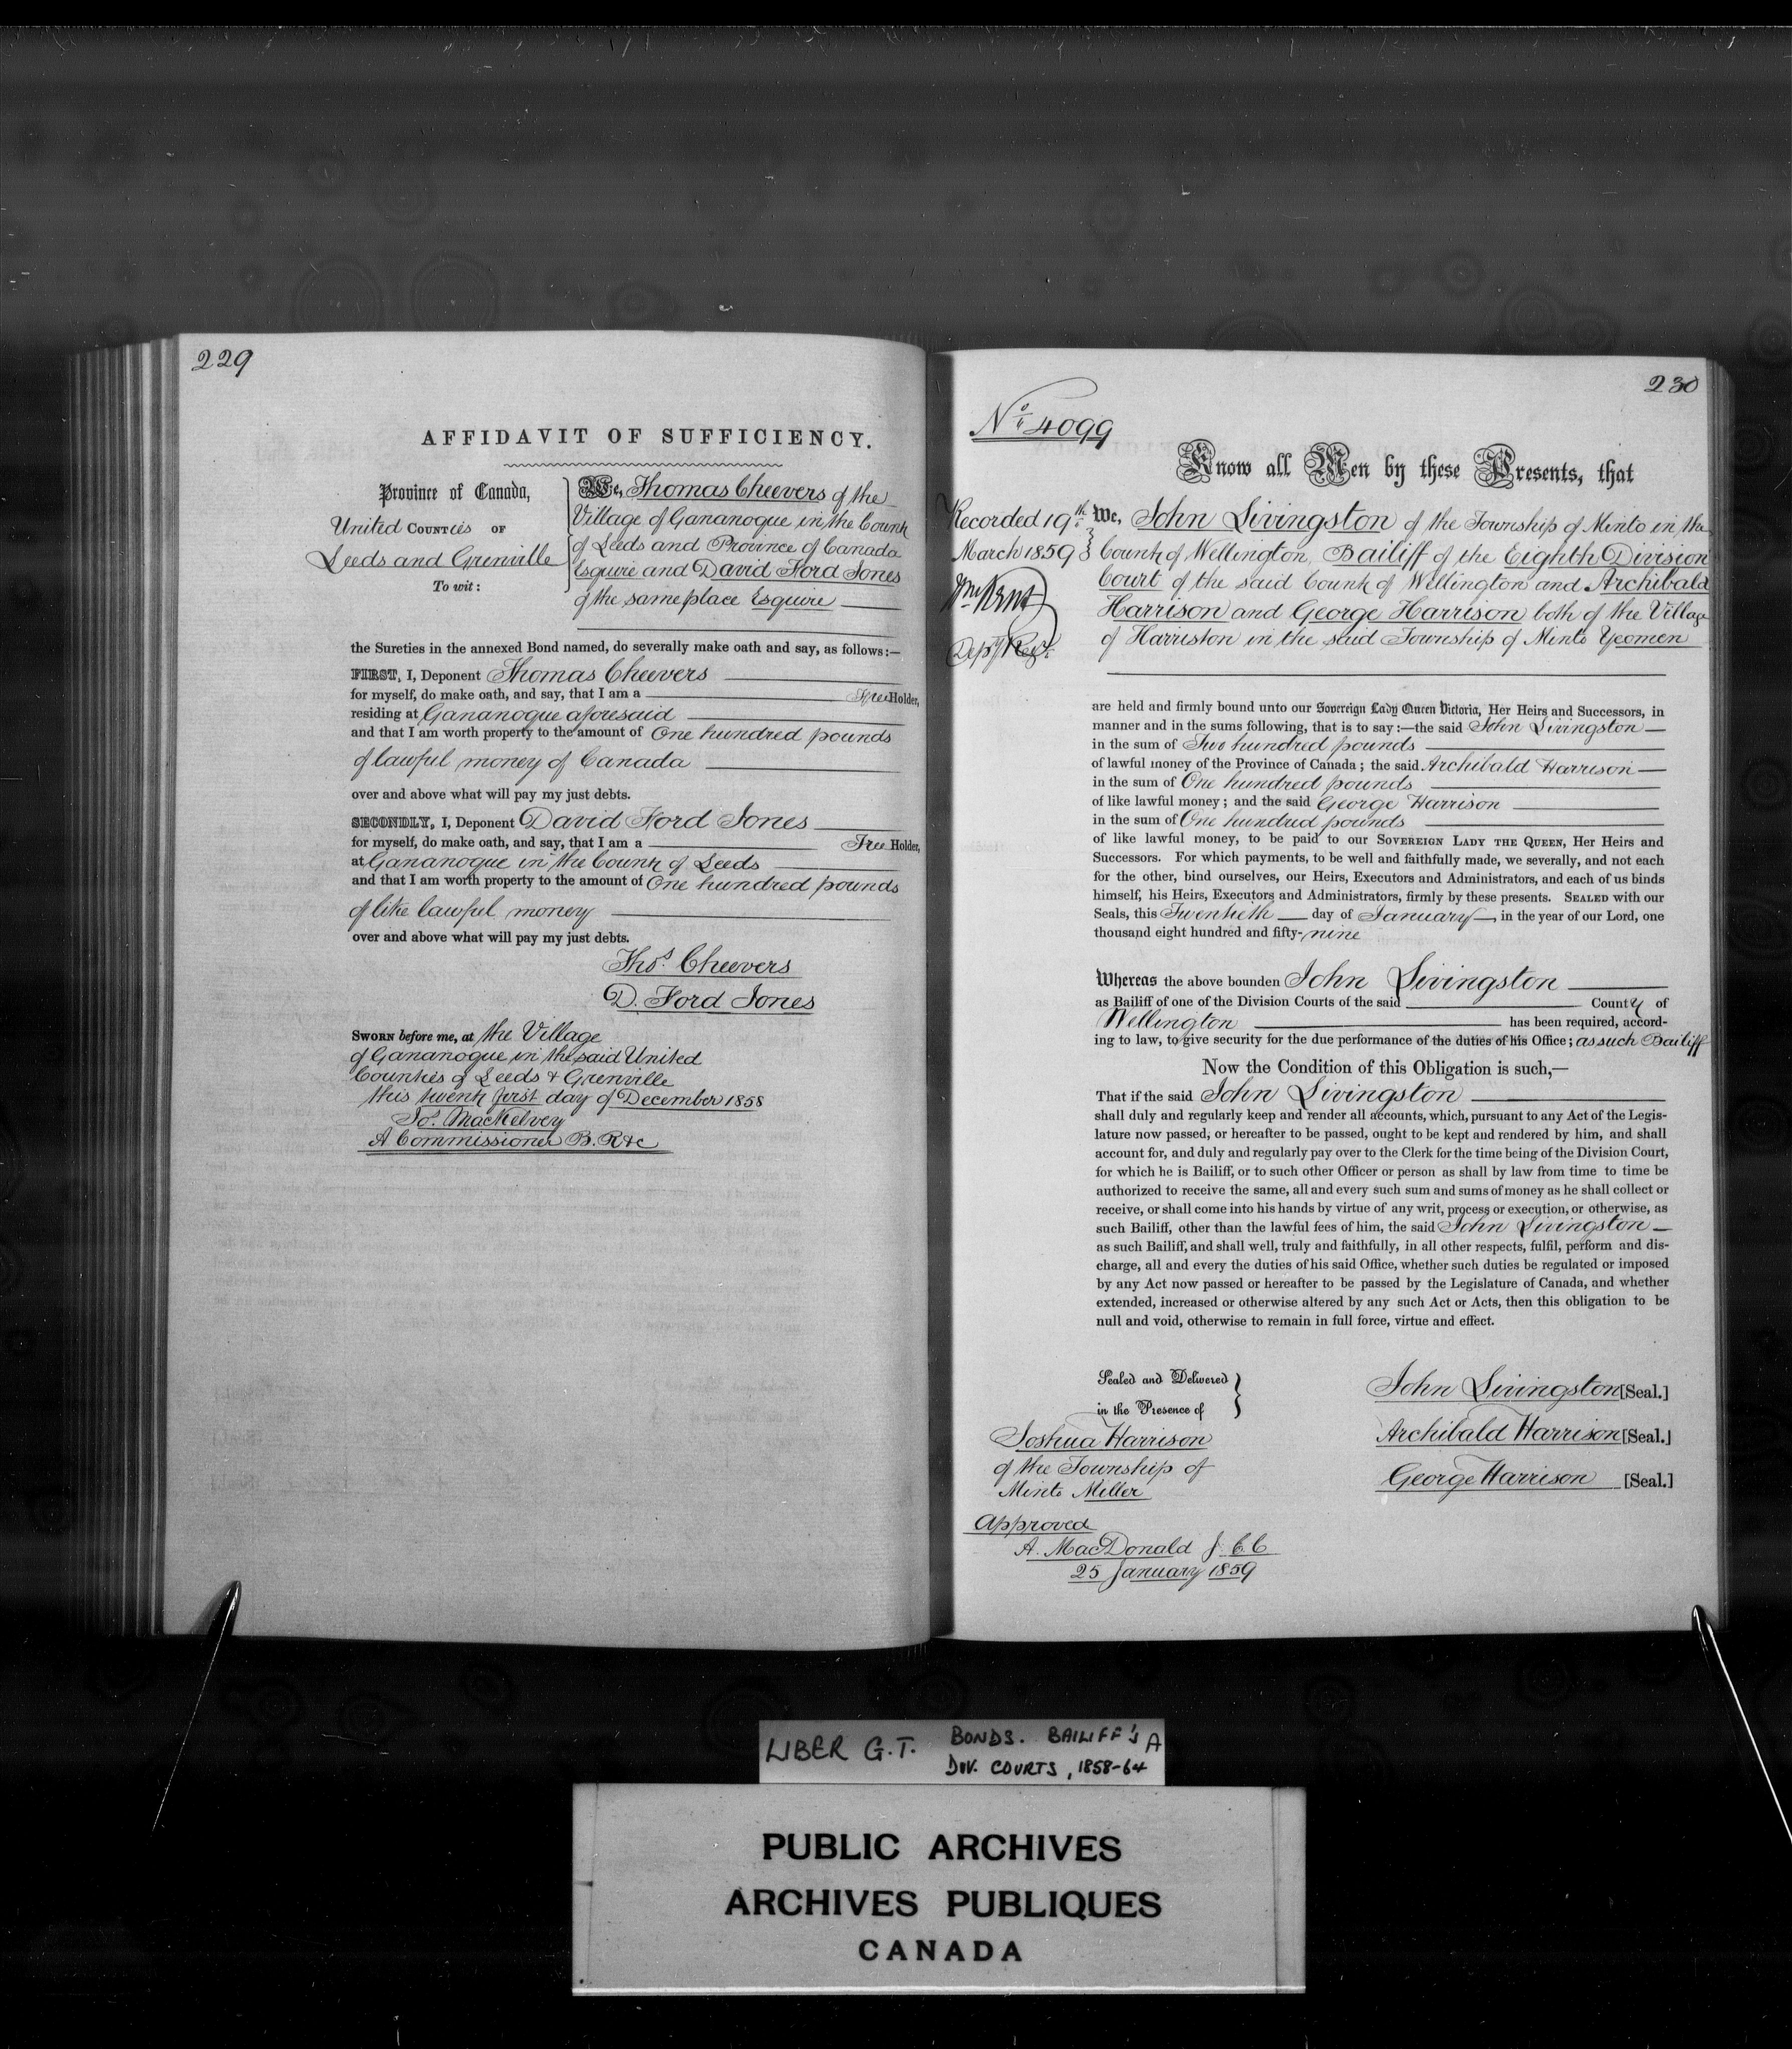 229
AFFIDAVIT OF SUFFICIENCY.
Province of Canada,
United COUNTies OF
Leeds and Grenville
To wit:
We, Thomas Cheevers of the
Village of Gananoque in the County
of Leeds and Province of Canada
Esquire and David Ford Jones
of the same place Esquire
the Sureties in the annexed Bond named, do severally make oath and say, as follows:—
FIRST, I, Deponent Thomas Cheevers
for myself, do make oath, and say, that I am a Free Holder,
residing at Gananoque aforesaid
and that I am worth property to the amount of One hundred pounds
of lawful money of Canada
over and above what will pay my just debts.
SECONDLY, I, Deponent David Ford Jones
for myself, do make oath, and say, that I am a Free Holder,
at Gananoque in the County of Leeds
and that I am worth property to the amount of One hundred pounds
of like lawful money
over and above what will pay my just debts.
Thos. Cheevers
D. Ford Jones
SWORN before me, at the Village
of Gananoque in the said United
Counties of Leeds & Grenville
this twenty first day of December 1858
Jos. MacKelvey
A Commissioner B. R &c
230
No. 4099
Know all Men by these Presents, that
Recorded 19th
March 1859
Wm Kent
Depy Regr.
We, John Livingston of the Township of Minto in the
County of Wellington, Bailiff of the Eighth Division
Court of the said County of Wellington and Archibald
Harrison and George Harrison both of the Village
of Harriston in the said Township of Minto Yeomen
are held and firmly bound unto our Sovereign Lady Queen Victoria, Her Heirs and Successors, in
manner and in the sums following, that is to say:—the said John Livingston
in the sum of Two hundred pounds
of lawful money of the Province of Canada; the said Archibald Harrison
in the sum of One hundred pounds
of like lawful money; and the said George Harrison
in the sum of One hundred pounds
of like lawful money, to be paid to our SOVEREIGN LADY THE QUEEN, Her Heirs and
Successors. For which payments, to be well and faithfully made, we severally, and not each
for the other, bind ourselves, our Heirs, Executors and Administrators, and each of us binds
himself, his Heirs, Executors and Administrators, firmly by these presents. SEALED with our
Seals, this Twentieth day of January, in the year of our Lord, one
thousand eight hundred and fifty-nine
Whereas the above bounden John Livingston
as Bailiff of one of the Division Courts of the said County of
Wellington has been required, accord-
ing to law, to give security for the due performance of the duties of his Office; as such Bailiff
Now the Condition of this Obligation is such,—
That if the said John Livingston
shall duly and regularly keep and render all accounts, which, pursuant to any Act of the Legis-
lature now passed, or hereafter to be passed, ought to be kept and rendered by him, and shall
account for, and duly and regularly pay over to the Clerk for the time being of the Division Court,
for which he is Bailiff, or to such other Officer or person as shall by law from time to time be
authorized to receive the same, all and every such sum and sums of money as he shall collect or
receive, or shall come into his hands by virtue of any writ, process or execution, or otherwise, as
such Bailiff, other than the lawful fees of him, the said John Livingston
as such Bailiff, and shall well, truly and faithfully, in all other respects, fulfil, perform and dis-
charge, all and every the duties of his said Office, whether such duties be regulated or imposed
by any Act now passed or hereafter to be passed by the Legislature of Canada, and whether
extended, increased or otherwise altered by any such Act or Acts, then this obligation to be
null and void, otherwise to remain in full force, virtue and effect.
Sealed and Delivered
in the Presence of
Joshua Harrison
of the Township of
Minto Miller
John Livingston [Seal.]
Archibald Harrison [Seal.]
George Harrison [Seal.]
Approved
A. MacDonald J. C. C
25 January 1859
LIBER G.T. BONDS. BAILIFF'S A
DIV. COURTS, 1858-64
PUBLIC ARCHIVES
ARCHIVES PUBLIQUES
CANADA